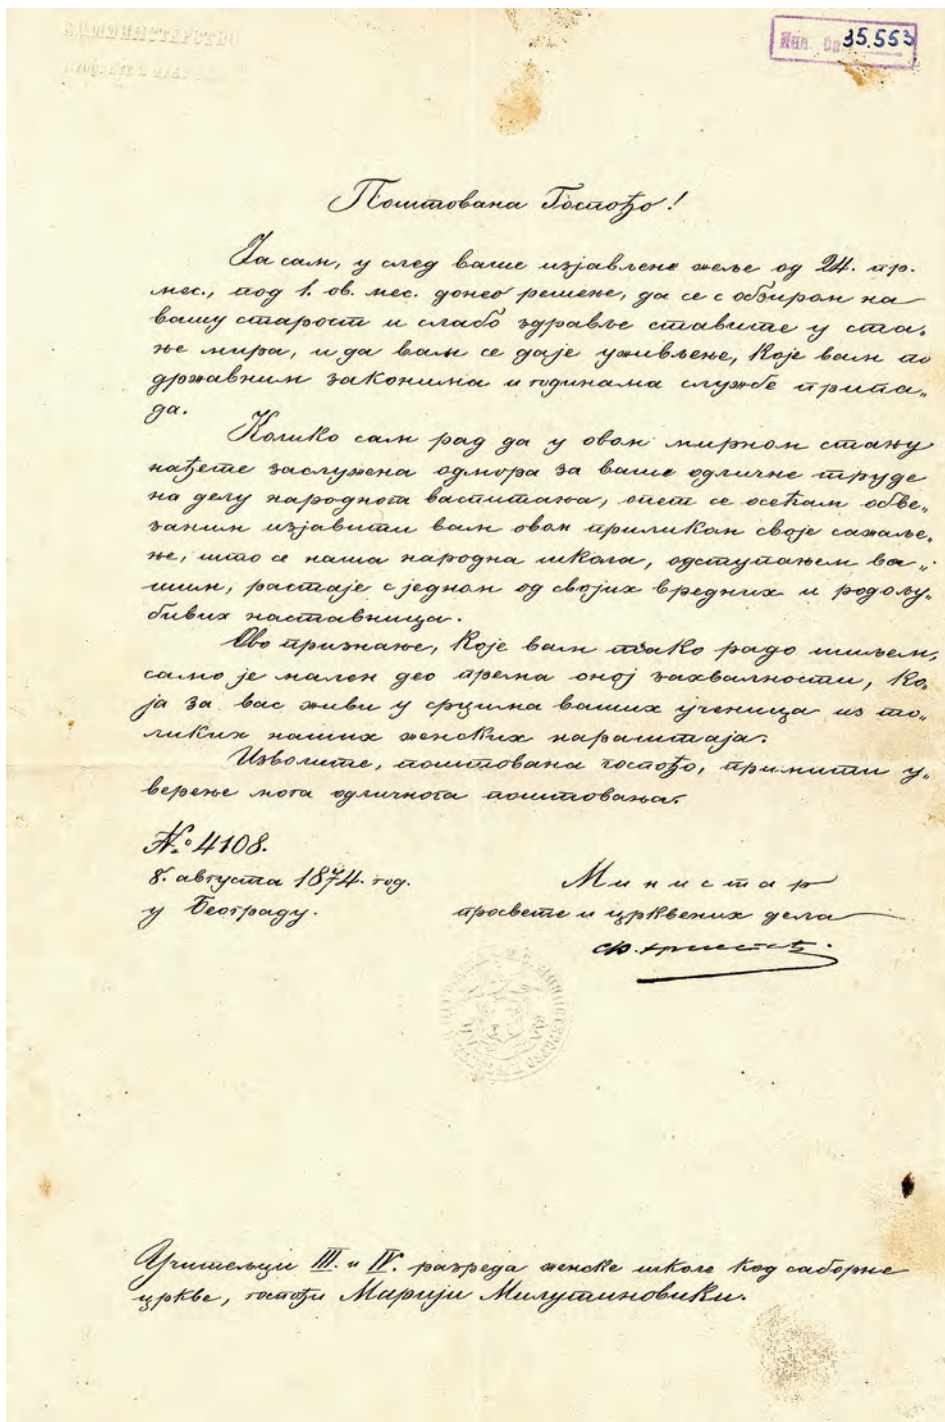 МИНИСТЕРСТВО
Инв. бр 35.553
Поштована Госпођо!
Ја сам, у след ваше изјављене жеље од 24. пр.
мес., под 1. ов. мес. донео решење, да се с обзиром на
вашу старост и слабо здравље ставите у ста„
ње мира, и да вам се даје уживљење, које вам по
државним законима и годинама службе припа„
да.
Колико сам рад да у овом мирном стању
нађете заслужена одмора за ваше одличне труде
на делу народнога васпитања, опет се осећам обве„
заним изјавити вам овом приликом своје сажаље„
ње, што се наша народна школа, одступањем ва„
шим, растаје с једном од својих вредних и родољу„
бивих наставница.
Ово признање, које вам тако радо шиљем,
само је мален део према оној захвалности, ко„
ја за вас живи у срцима ваших ученица из то„
ликих наших женских нараштаја.
Изволите, поштована госпођо, примити у„
верење мога одличнога поштовања.
№ 4108.
8. августа 1874. год.
у Београду.
Министар
просвете и црквених дела
Учитељци III. и IV. разреда женске школе код саборне
цркве, госпођи Марији Милутиновићки.